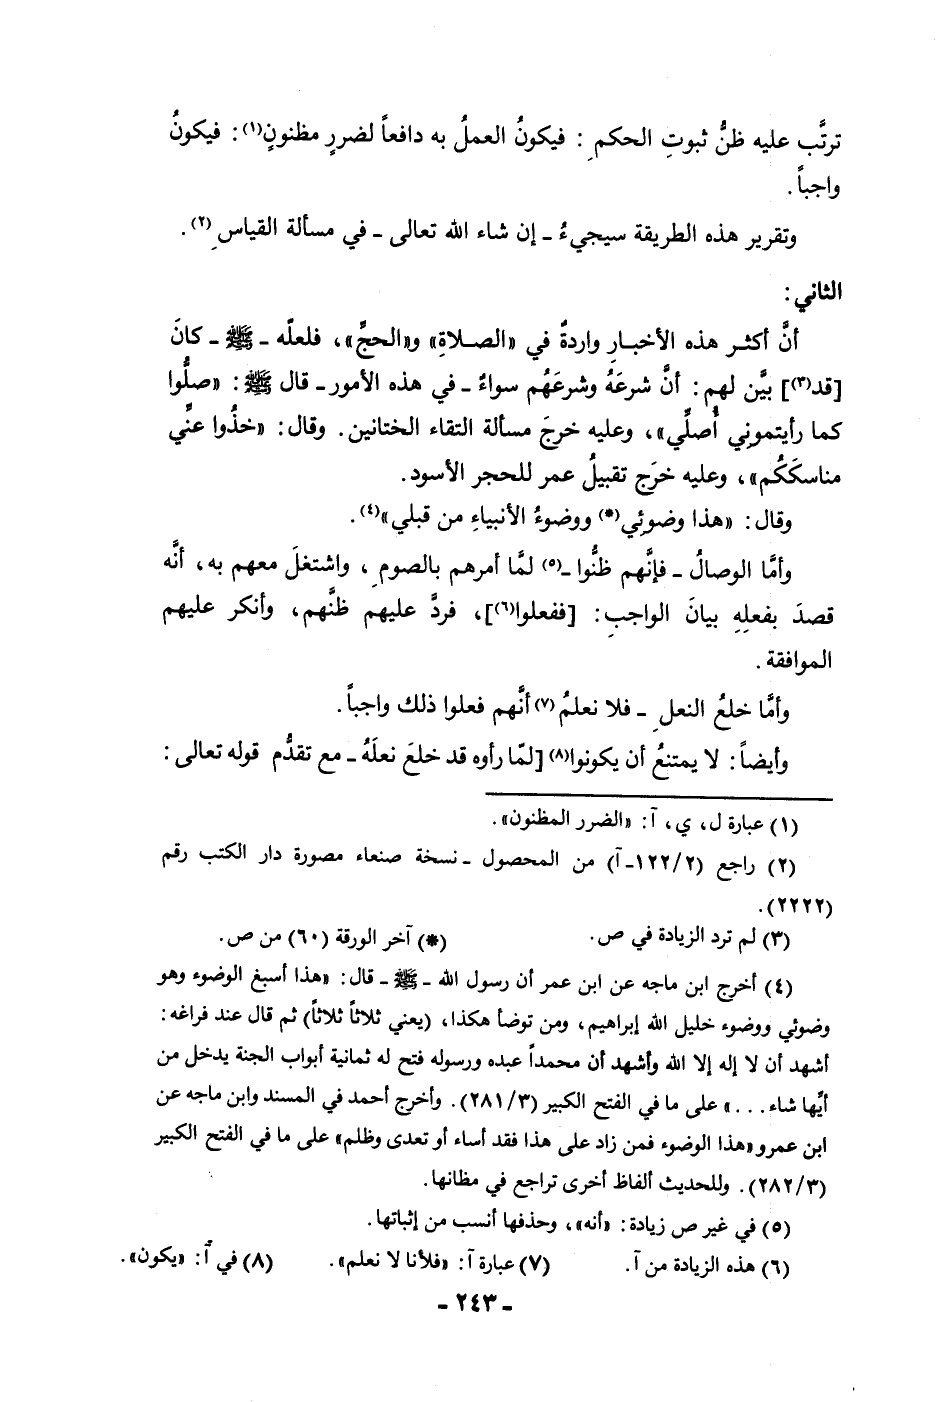 ترتَّب عليه ظنُّ ثبوتِ الحكمِ : فيكونُ العملُ به دافعاً لضررٍ مظنونٍ(١): فيكونُ
واجباً.
وتقرير هذه الطريقة سيجيءُ ـ إن شاء الله تعالى ـ في مسألة القياسِ(٢).
الثاني:
أنَّ أكثر هذه الأخبارِ واردةٌ في «الصلاةِ» و«الحجِّ»، فلعلّه ـ ﷺ ـ كانَ
[قد(٣)] بيَّن لهم: أنَّ شرعَهُ وشرعَهُم سواءٌ ـ في هذه الأمور ـ قال ﷺ: «صلُّوا
كما رأيتموني أُصلِّي»، وعليه خرجَ مسألة التقاء الختانين. وقال: «خذُوا عنِّي
مناسكَكُم»، وعليه خرَج تقبيلُ عمر للحجر الأسود.
وقال: «هذا وضوئِي(*) ووضوءُ الأنبياءِ من قبلي»(٤).
وأمَّا الوصالُ ـ فإنَّهم ظنُّوا ـ(٥) لمَّا أمرهم بالصومِ، واشتغلَ معهم به، أنَّه
قصدَ بفعلِهِ بيانَ الواجبِ: [ففعلوا(٦)]، فردَّ عليهم ظنَّهم، وأنكر عليهم
الموافقة.
وأمَّا خلعُ النعلِ ـ فلا نعلمُ(٧) أنَّهم فعلوا ذلك واجباً.
وأيضاً: لا يمتنعُ أن يكونوا(٨) [لمّا رأوه قد خلعَ نعلَهُ ـ مع تقدُّم قوله تعالى:
(١) عبارة ل، ي، آ: «الضرر المظنون».
(٢) راجع (١٢٢/٢ـ آ) من المحصول ـ نسخة صنعاء مصورة دار الكتب رقم
(٢٢٢٢).
(٣) لم ترد الزيادة في ص. (*) آخر الورقة (٦٠) من ص.
(٤) أخرج ابن ماجه عن ابن عمر أن رسول الله ـ ﷺ ـ قال: «هذا أسبغ الوضوء وهو
وضوئي ووضوء خليل الله إبراهيم، ومن توضأ هكذا، (يعني ثلاثاً ثلاثاً) ثم قال عند فراغه:
أشهد أن لا إله إلا الله وأشهد أن محمداً عبده ورسوله فتح له ثمانية أبواب الجنة يدخل من
أيّها شاء . . .» على ما في الفتح الكبير (٢٨١/٣). وأخرج أحمد في المسند وابن ماجه عن
ابن عمرو «هذا الوضوء فمن زاد على هذا فقد أساء أو تعدى وظلم» على ما في الفتح الكبير
(٢٨٢/٣). وللحديث ألفاظ أخرى تراجع في مظانها.
(٥) في غير ص زيادة: «أنه»، وحذفها أنسب من إثباتها.
(٦) هذه الزيادة من آ. (٧) عبارة آ: «فلأنا لا نعلم». (٨) في آ: «يكون».
ـ ٢٤٣ ـ